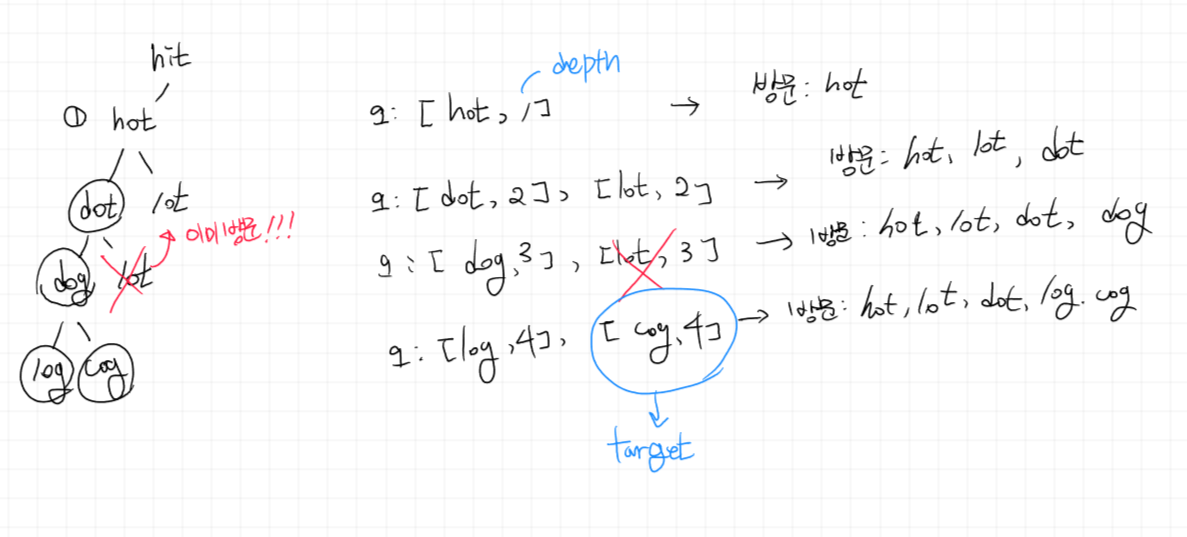 hit
① hot
dot lot
이미방문!!!
dog lot
log cog
depth
q: [ hot, 1] → 방문: hot
q: [ dot, 2], [lot, 2] → 방문: hot, lot, dot
q: [ dog, 3], [lot, 3] → 방문: hot, lot, dot, dog
q: [log, 4], [ cog, 4] → 방문: hot, lot, dot, log. cog
target